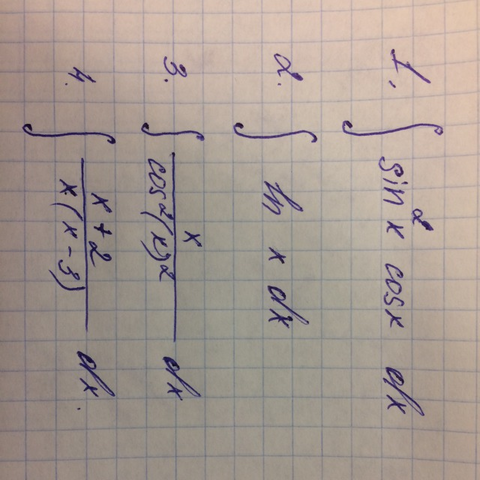 1. ∫ sin²x cosx dx
2. ∫ ln x dx
3. ∫ x / cos²(x)² dx
4. ∫ (x + 2) / (x(x - 3)) dx.